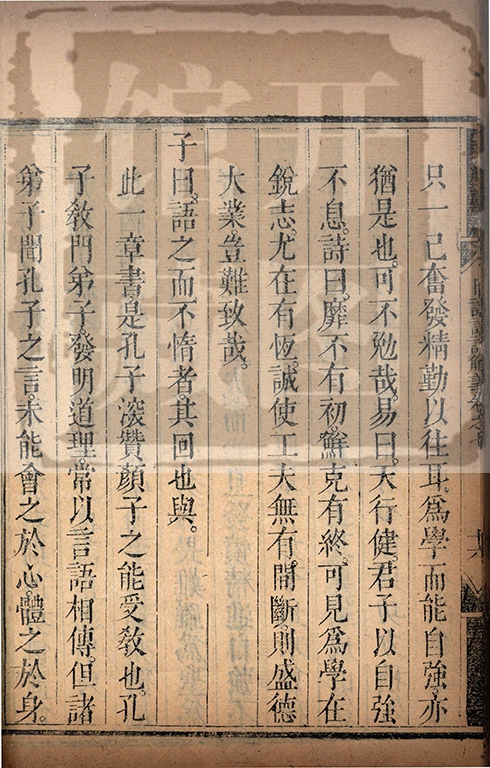 只一己奮發精勤以往耳爲學而能自強亦
猶是也可不勉哉易曰天行健君子以自強
不息詩曰靡不有初鮮克有終可見爲學在
銳志尤在有恆誠使工夫無有間斷則盛德
大業豈難致哉
子曰語之而不惰者其回也與
此一章書是孔子深贊顏子之能受教也孔
子教門弟子發明道理常以言語相傳但諸
弟子聞孔子之言未能會之於心體之於身